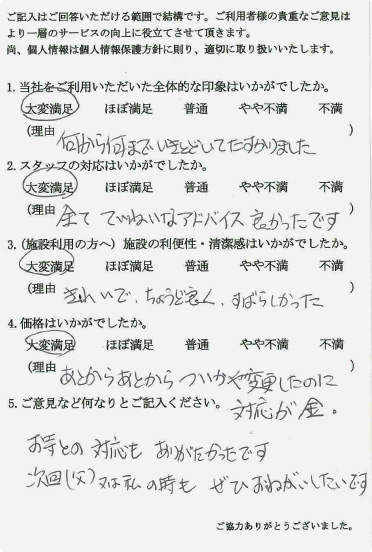 ご記入はご回答いただける範囲で結構です。ご利用者様の貴重なご意見は
より一層のサービスの向上に役立てさせて頂きます。
尚、個人情報は個人情報保護方針に則り、適切に取り扱いいたします。
1. 当社をご利用いただいた全体的な印象はいかがでしたか。
大変満足 ほぼ満足 普通 やや不満 不満
(理由 何から何まで してたすかりました )
2. スタッフの対応はいかがでしたか。
大変満足 ほぼ満足 普通 やや不満 不満
(理由 全て ていねいなアドバイス 良かったです )
3. (施設利用の方へ) 施設の利便性・清潔感はいかがでしたか。
大変満足 ほぼ満足 普通 やや不満 不満
(理由 きれいで、ちょうど良く、すばらしかった )
4. 価格はいかがでしたか。
大変満足 ほぼ満足 普通 やや不満 不満
(理由 あとからあとから ついかや変更したのに )
対応が金。
5. ご意見など何なりとご記入ください。
お寺との 対応も ありがたかったです
次回(父)又は私の時も ぜひおねがいしたいです
ご協力ありがとうございました。